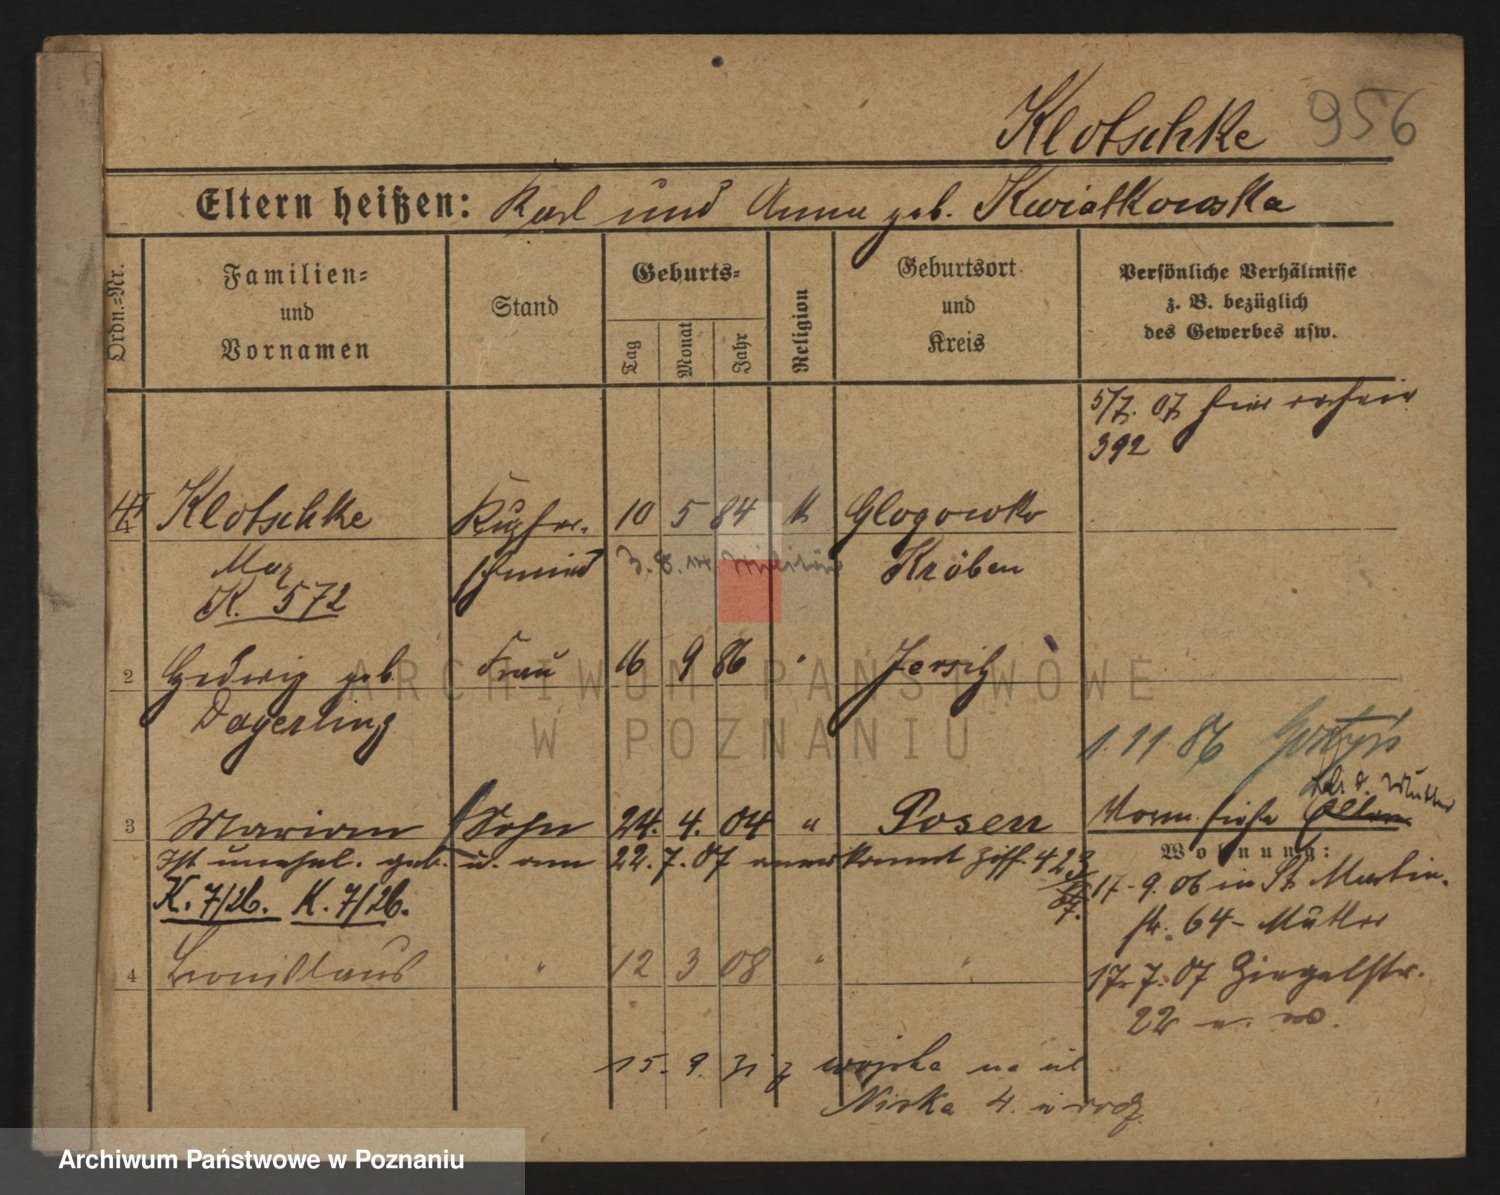 Klotschke 956
Eltern heißen: Karl und Anna geb. Kwiatkowska
Ordn.-Nr.
Familien- und Vornamen
Stand
Geburts-
Tag
Monat
Jahr
Religion
Geburtsort und Kreis
Persönliche Verhältnisse z. B. bezüglich des Gewerbes usw.
5/7. 07 hier
392
Klotschke Kupfer- 10 5 84 k Glogowko
Max schmied 3. 8. Militär Kröben
K. 572
2 Hedwig geb. Frau 16 9 86 " Jersitz
Dagerling
1. 11 86 Gostyń
3 Marian Sohn 24. 4. 04 " Posen
Vorm. siehe Eltern
b. d. Mutter
Ist unehel. geb. u. am 22. 7. 07 anerkannt Ziff. 423
Wohnung:
K. 7/26. K. 7/26.
17. 9. 06 in St. Martin-
str. 64 - Mutter
4 Bronislaus " 12 3 08 " "
17. 7. 07 Ziegelstr.
22
15. 9. z wojska na ul
Niska 4.
ARCHIWUM PAŃSTWOWE
W POZNANIU
Archiwum Państwowe w Poznaniu